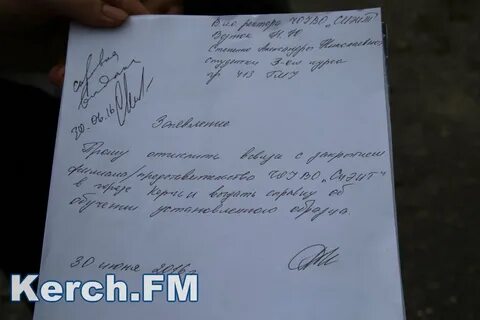 В.и.о. ректора ЧОУВО "СИЭИТ"
Степенко Александры Николаевны
студентки 3-го курса
гр. 413 ГМУ
справка
30.06.16
Заявление
Прошу отчислить в связи с закрытием
филиала/представительство ЧОУВО "СИЭИТ"
в городе Керчи и выдать справку об
обучении установленного образца.
30 июня 2016 г.
Kerch.FM